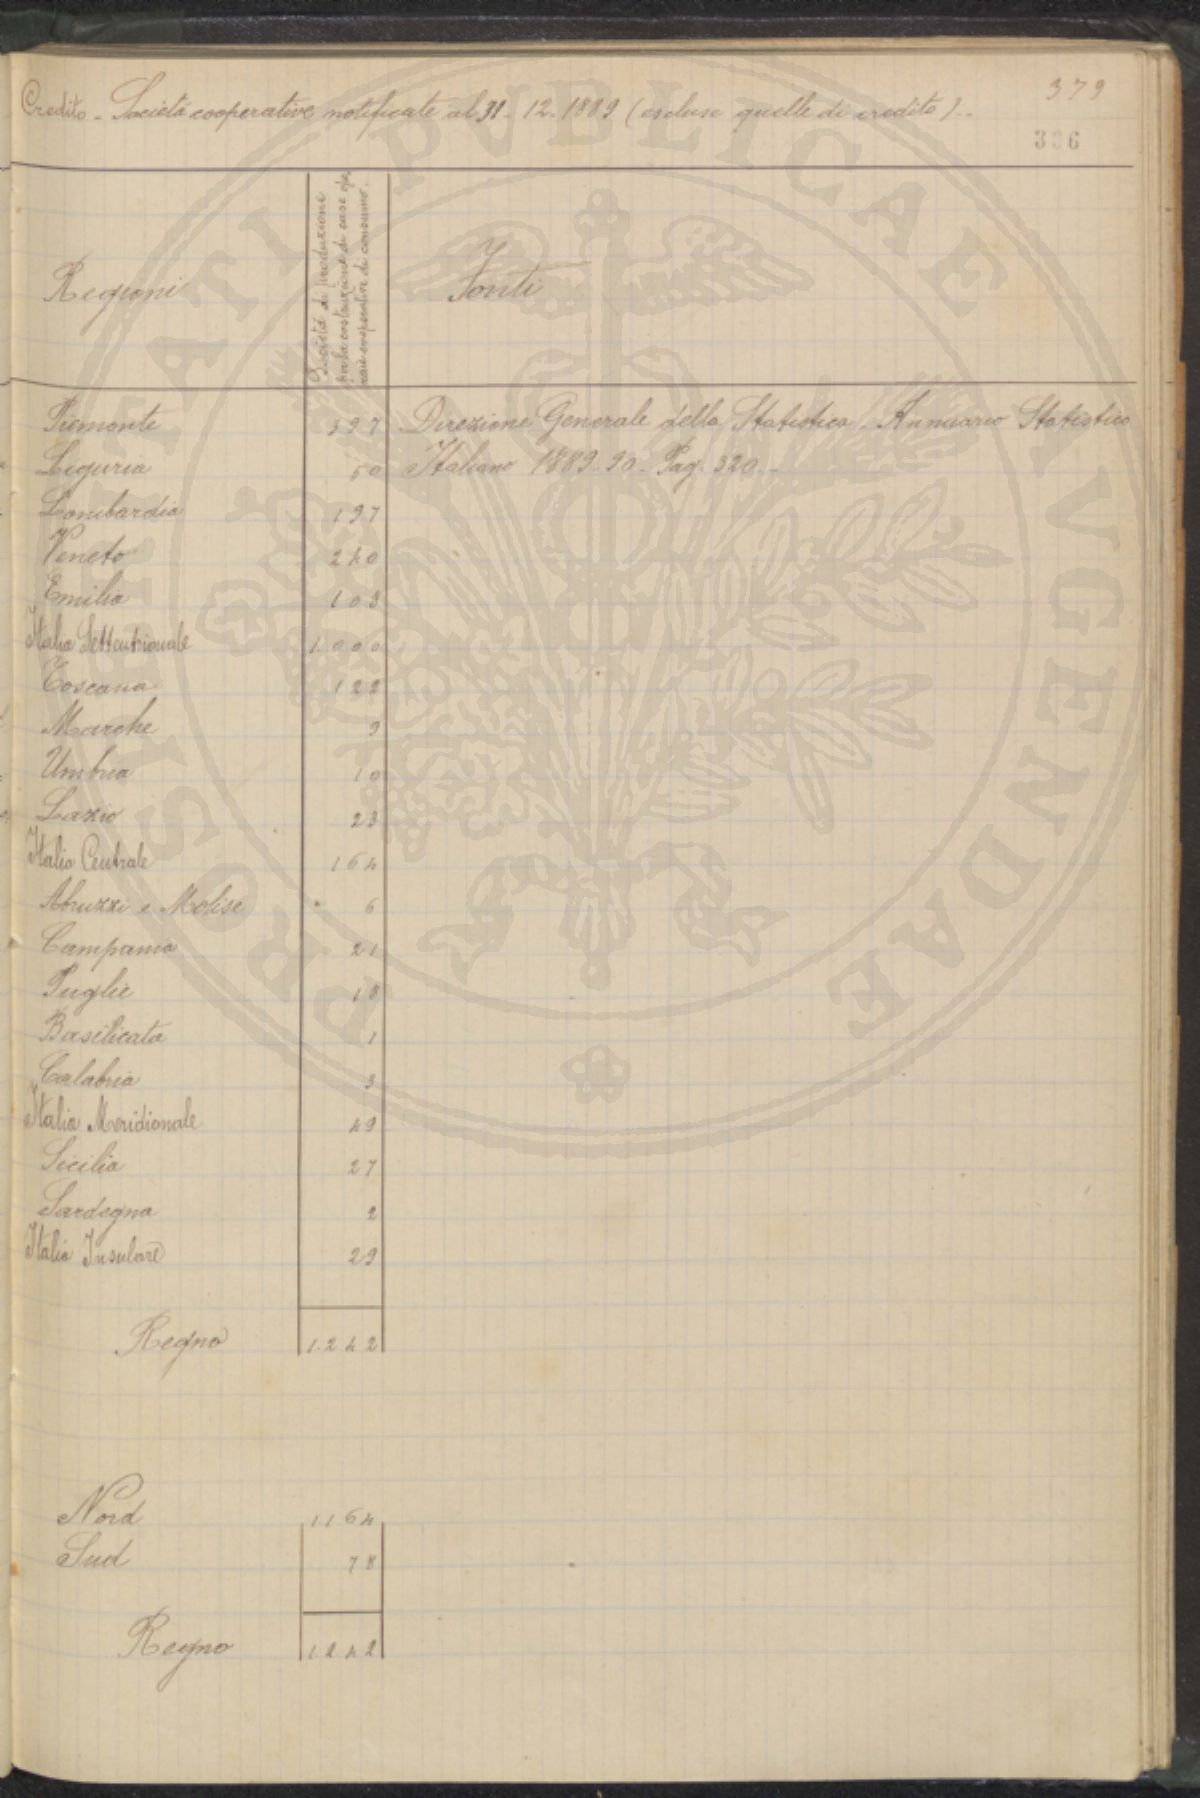 379
Credito - Società cooperative notificate al 31-12-1889 (escluse quelle di credito)..
306
Regioni
Società di produzione
per la costruzione di case ope
raie cooperative di consumo.
Fonti
Piemonte 397 Direzione Generale della Statistica - Annuario Statistico
Liguria 60 Italiano 1889-90 - Pag. 320. -
Lombardia 197
Veneto 240
Emilia 103
Italia Settentrionale 1.000
Toscana 122
Marche 9
Umbria 10
Lazio 23
Italia Centrale 164
Abruzzi e Molise 6
Campania 21
Puglie 18
Basilicata 1
Calabria 3
Italia Meridionale 49
Sicilia 27
Sardegna 2
Italia Insulare 29
Regno 1.242
Nord 1164
Sud 78
Regno 1.242
PROSPERITATI PUBLICAE AVGENDAE